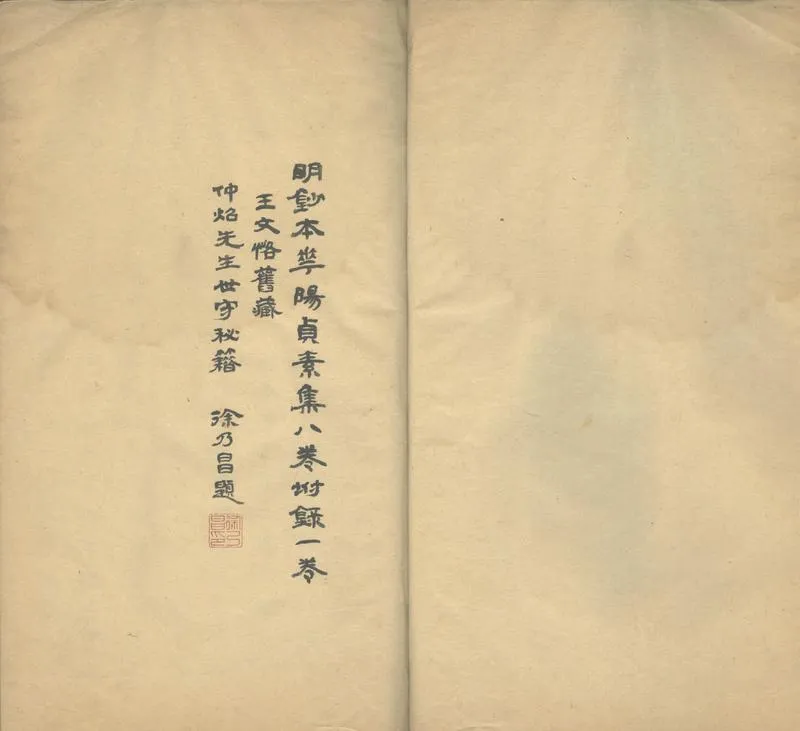 明鈔本華陽貞素集八卷坿錄一卷
王文恪舊藏
仲炤先生世守秘籍　徐乃昌題
徐乃昌印